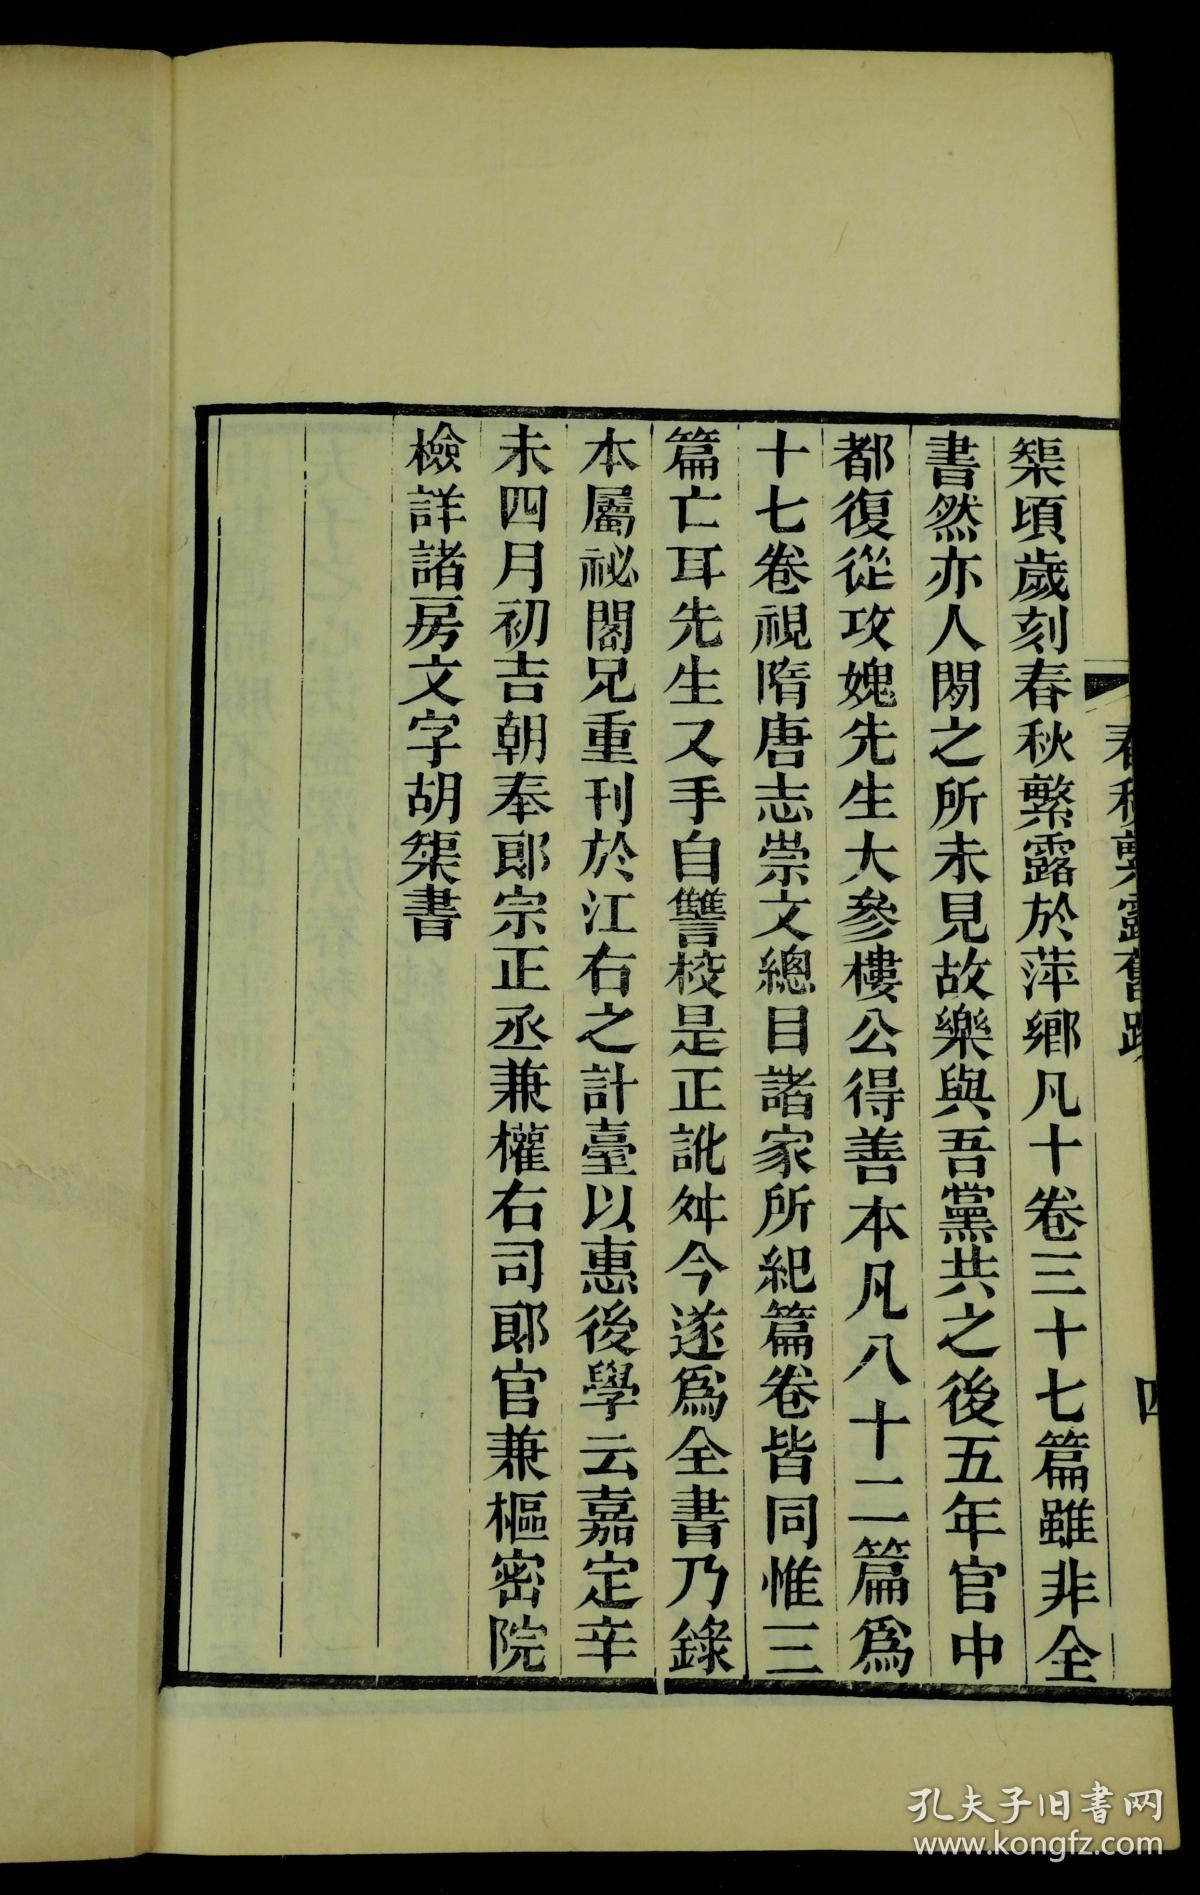 槼頃歲刻春秋繁露於萍鄉凡十卷三十七篇雖非全
書然亦人閒之所未見故樂與吾黨共之後五年官中
都復從攻媿先生大參樓公得善本凡八十二篇爲
十七卷視隋唐志崇文總目諸家所紀篇卷皆同惟三
篇亡耳先生又手自讐校是正訛舛今遂爲全書乃錄
本屬祕閣兄重刊於江右之計臺以惠後學云嘉定辛
未四月初吉朝奉郞宗正丞兼權右司郞官兼樞密院
檢詳諸房文字胡槼書
春秋繁露舊跋
四
孔夫子旧书网
www.kongfz.com